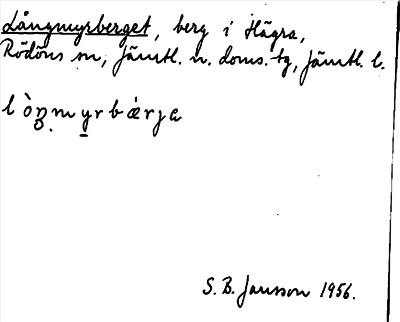 Långmyrberget, berg i Hägra,
Rödöns sn, Jämtl. n. doms. tg, Jämtl. l.
S. B. Jansson 1956.